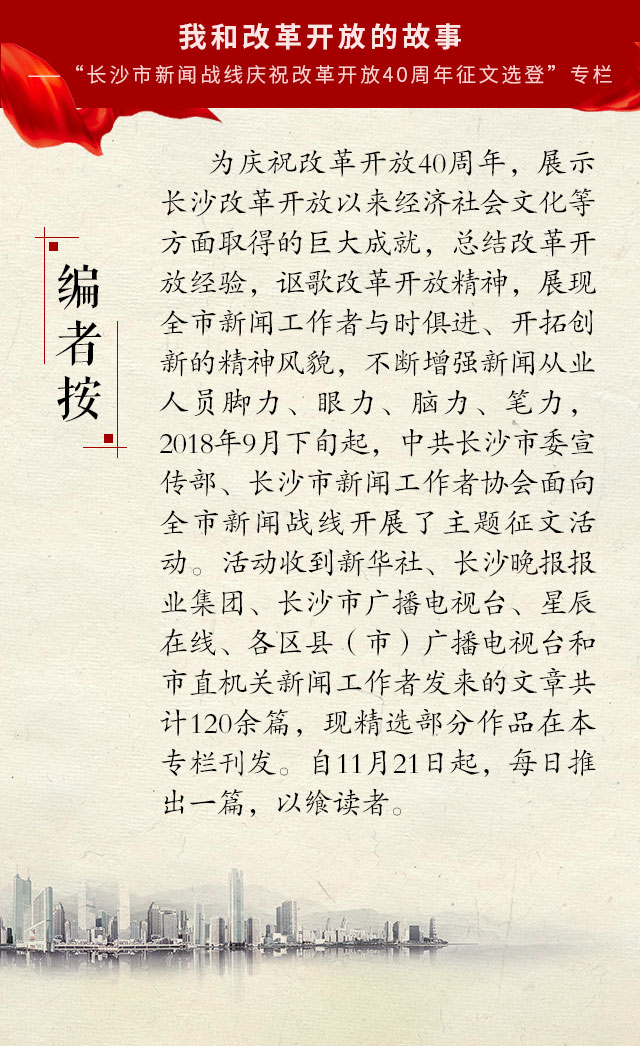 我和改革开放的故事
——“长沙市新闻战线庆祝改革开放40周年征文选登”专栏
编者按
为庆祝改革开放40周年，展示
长沙改革开放以来经济社会文化等
方面取得的巨大成就，总结改革开
放经验，讴歌改革开放精神，展现
全市新闻工作者与时俱进、开拓创
新的精神风貌，不断增强新闻从业
人员脚力、眼力、脑力、笔力，
2018年9月下旬起，中共长沙市委宣
传部、长沙市新闻工作者协会面向
全市新闻战线开展了主题征文活
动。活动收到新华社、长沙晚报报
业集团、长沙市广播电视台、星辰
在线、各区县（市）广播电视台和
市直机关新闻工作者发来的文章共
计120余篇，现精选部分作品在本
专栏刊发。自11月21日起，每日推
出一篇，以飨读者。